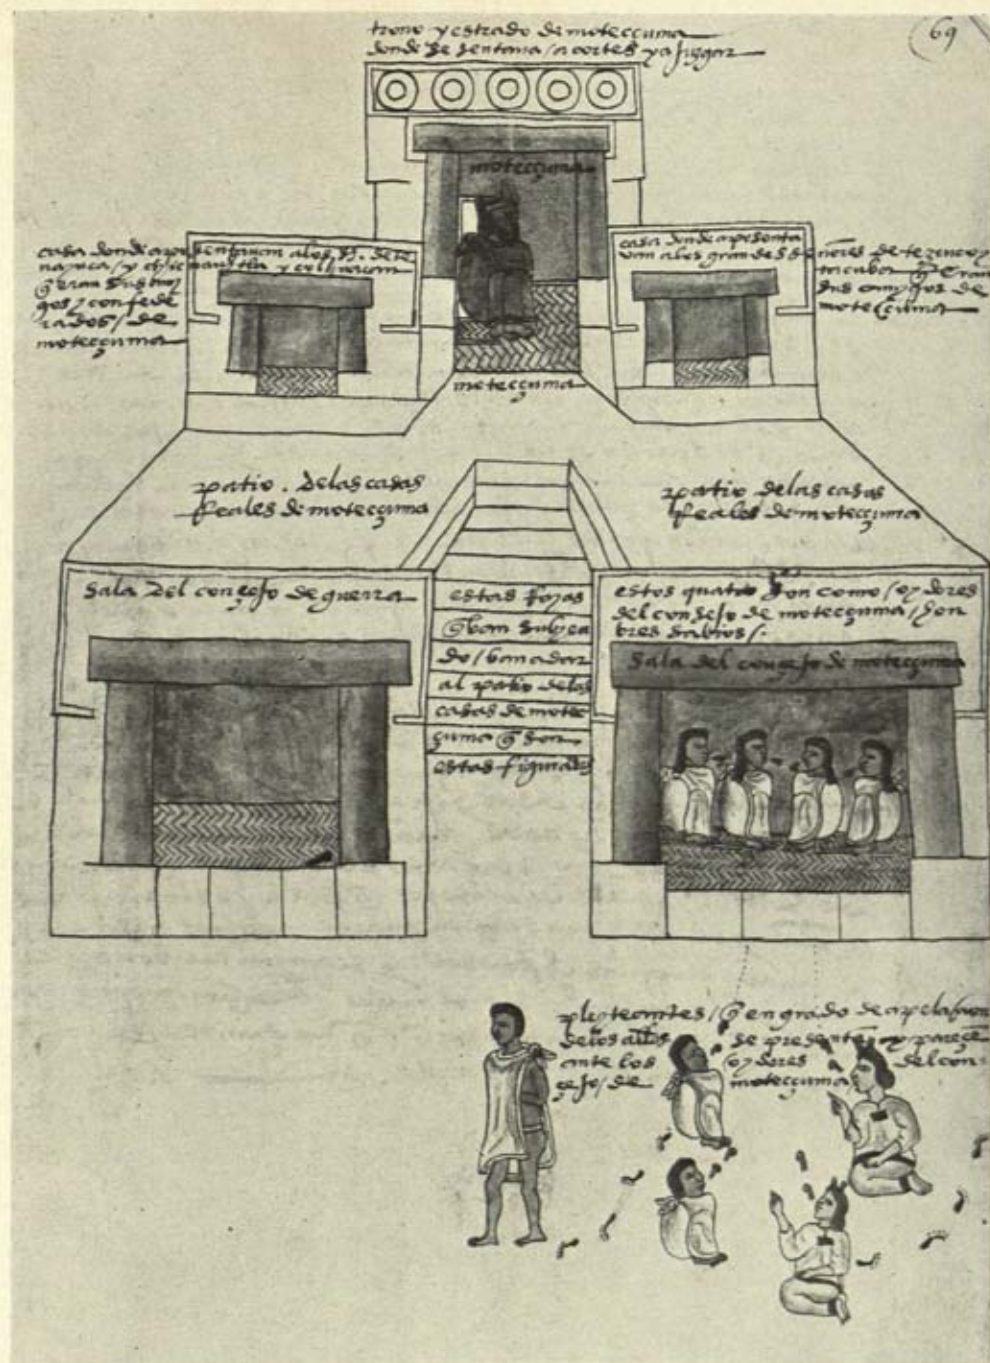 69
trono y estrado de moteccuma
donde se sentava / a cortes y a juzgar
moteccuma
casa donde aposentavan a los s. de te
nayuca / y chicnauhtla y culhuacan
q̃ eran sus ami
gos y confede
rados / de
moteccuma
casa donde aposenta
van a los grandes señores de tezcuco y
tacuba q̃ eran
sus amigos de
moteccuma
moteccuma
patio . de las casas
Reales de moteccuma
patio de las casas
Reales de moteccuma
sala del consejo de guerra
estas Rayas
q̃ van subien
do / van a dar
al patio de las
casas de motec
çuma q̃ son
estas figuradas
estos quatro son como / oydores
del consejo de moteccuma / hon
bres sabios /.
sala del consejo de moteccuma
pleyteantes / q̃ en grado de apelaçion
de los allds se presentã y pareçẽ
ante los oydores del con
sejo / de moteccuma